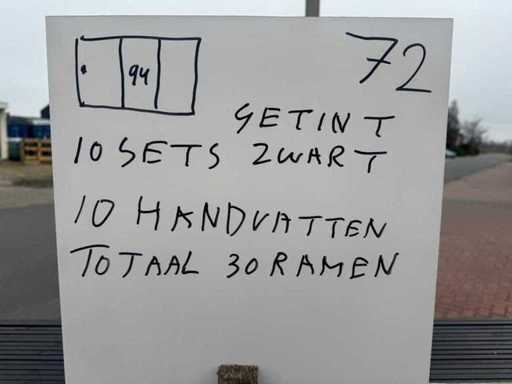 72
94
GETINT
10 SETS ZWART
10 HANDVATTEN
TOTAAL 30 RAMEN